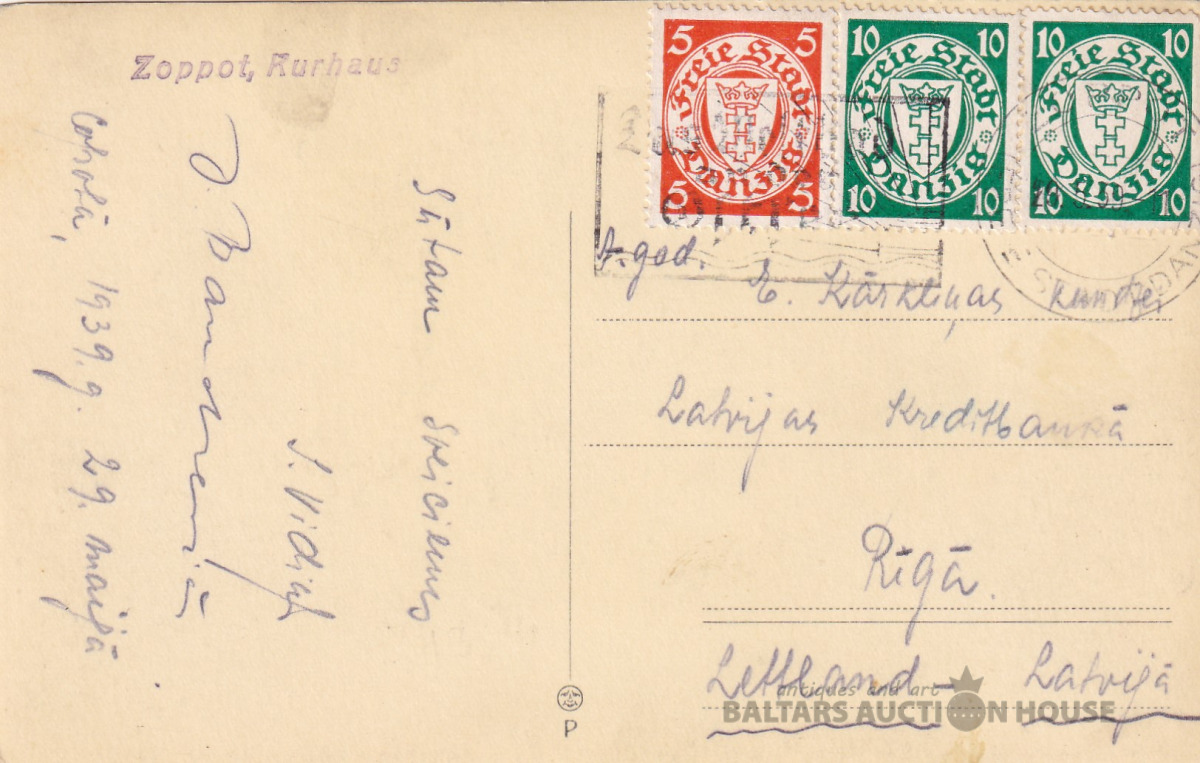 Zoppot, Kurhaus
Sūtam sveicienus
Copotā, 1939.g. 29. maijā
5 5
Freie Stadt
Danzig
5 5
10 10
Freie Stadt
Danzig
10 10
10 10
Freie Stadt
Danzig
10 10
A. god.
E. Kārkliņas kundzei
Latvijas Kreditbankā
Rīgā.
Lettland – Latvijā
P
antiques and art
BALTARS AUCTION HOUSE